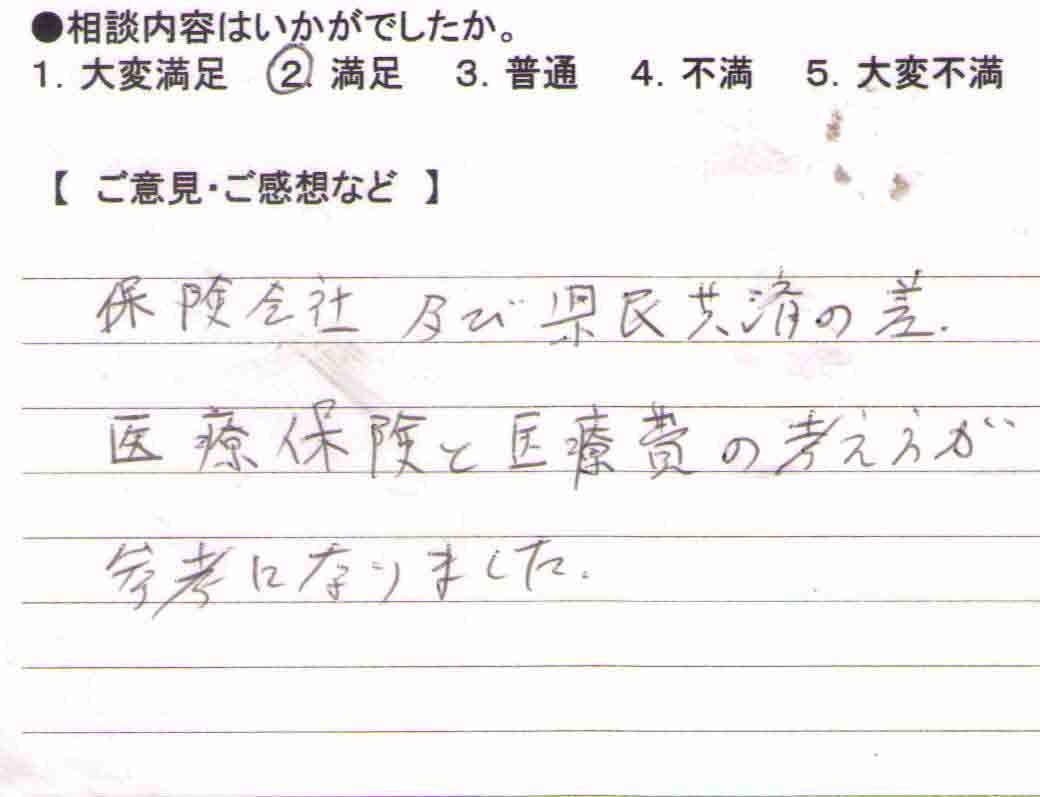 ●相談内容はいかがでしたか。
1. 大変満足 2. 満足 3. 普通 4. 不満 5. 大変不満
【 ご意見・ご感想など 】
保険会社 及び県民共済の差.
医療保険と医療費の考え方が
参考になりました.